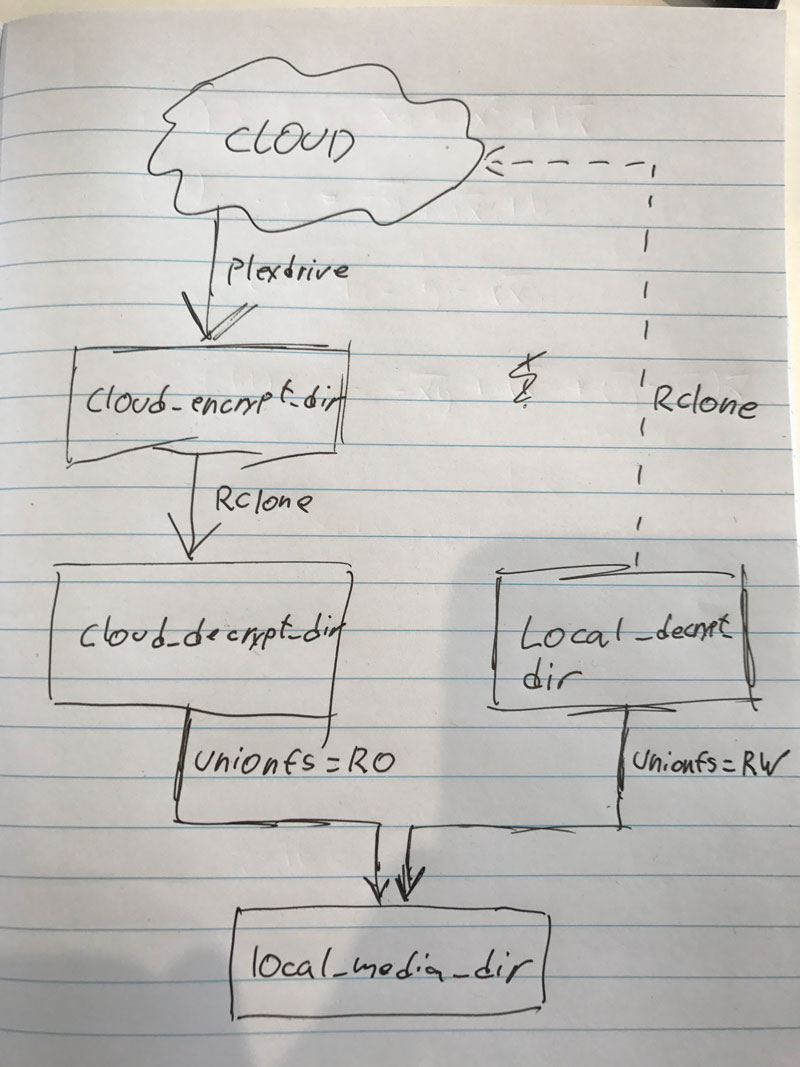 CLOUD
Plexdrive
Cloud_encrypt_dir
Rclone
Rclone
Cloud_decrypt_dir
Local_decrypt
dir
Unionfs=RO
Unionfs=RW
local_media_dir